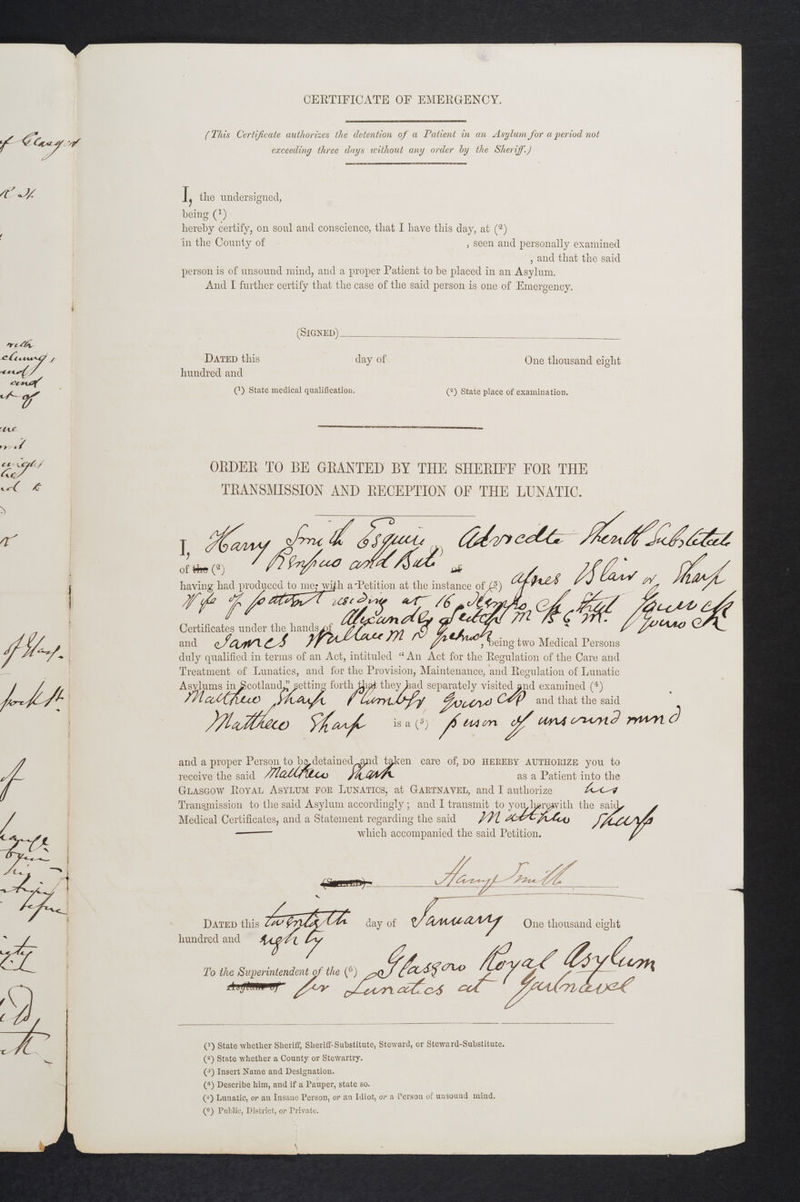 CERTIFICATE OF EMERGENCY.
(This Certificate authorizes the detention of a Patient in an Asylum for a period not
exceeding three days without any order by the Sheriff.)
I, the undersigned,
being (1)
hereby certify, on soul and conscience, that I have this day, at (2)
in the County of , seen and personally examined
, and that the said
person is of unsound mind, and a proper Patient to be placed in an Asylum.
And I further certify that the case of the said person is one of Emergency.
(SIGNED)
DATED this day of One thousand eight
hundred and
(1) State medical qualification. (2) State place of examination.
ORDER TO BE GRANTED BY THE SHERIFF FOR THE
TRANSMISSION AND RECEPTION OF THE LUNATIC.
I, Harry Smith Esquire, Advocate Sheriff Substitute
of the (2) Renfrew and Bute
having had produced to me, with a Petition at the instance of (3) Agnes Blair or Sharp
Wife of patient residing at 16
Certificates under the hands of Alexander M B C M.
and James Wallace M D Greenock, being two Medical Persons
duly qualified in terms of an Act, intituled “An Act for the Regulation of the Care and
Treatment of Lunatics, and for the Provision, Maintenance, and Regulation of Lunatic
Asylums in Scotland,” setting forth that they had separately visited and examined (4)
Matthew Sharp Plumber and that the said
Matthew Sharp is a (5) person of unsound mind
and a proper Person to be detained and taken care of, DO HEREBY AUTHORIZE you to
receive the said Matthew Sharp as a Patient into the
GLASGOW ROYAL ASYLUM FOR LUNATICS, at GARTNAVEL, and I authorize his
Transmission to the said Asylum accordingly; and I transmit to you herewith the said
Medical Certificates, and a Statement regarding the said Matthew Sharp
which accompanied the said Petition.
(SIGNED) Harry Smith
DATED this twentieth day of January One thousand eight
hundred and eighty
To the Superintendent of the (6) Glasgow Royal Asylum
Asylum of for Lunatics at Gartnavel
(1) State whether Sheriff, Sheriff-Substitute, Steward, or Steward-Substitute.
(2) State whether a County or Stewartry.
(3) Insert Name and Designation.
(4) Describe him, and if a Pauper, state so.
(5) Lunatic, or an Insane Person, or an Idiot, or a Person of unsound mind.
(6) Public, District, or Private.